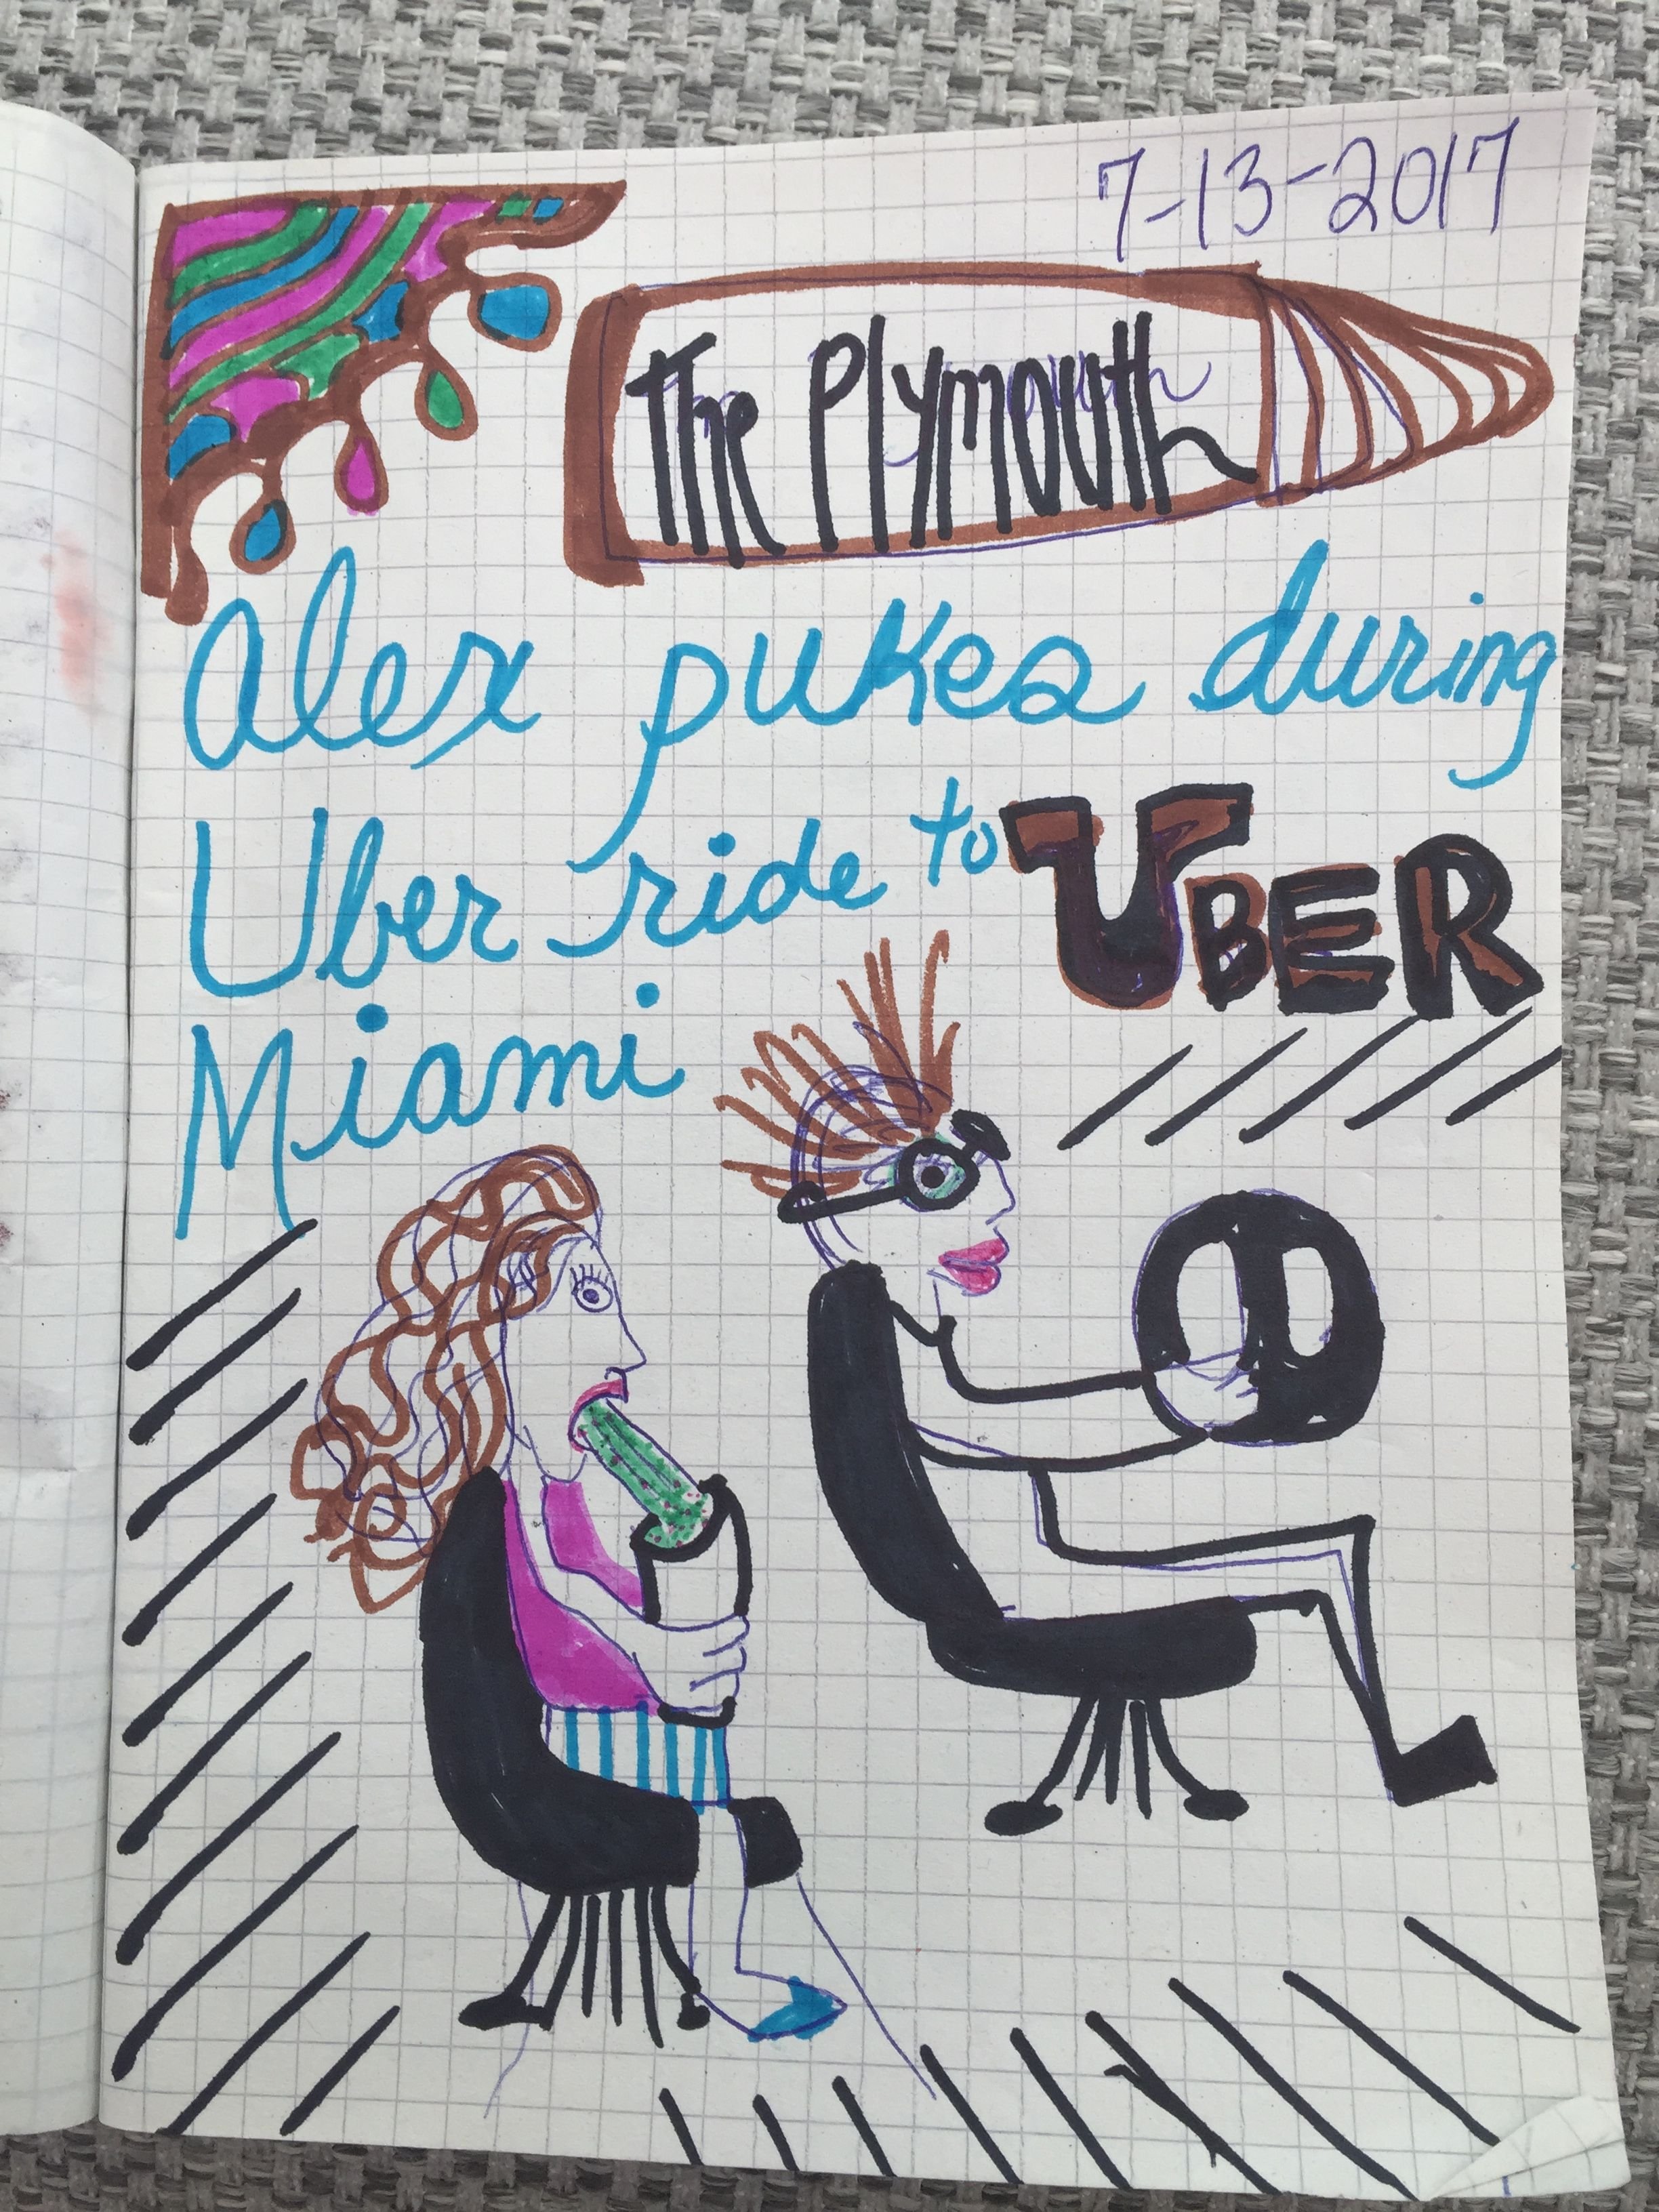 7-13-2017
The Plymouth
Alex pukes during
Uber ride to
UBER
Miami